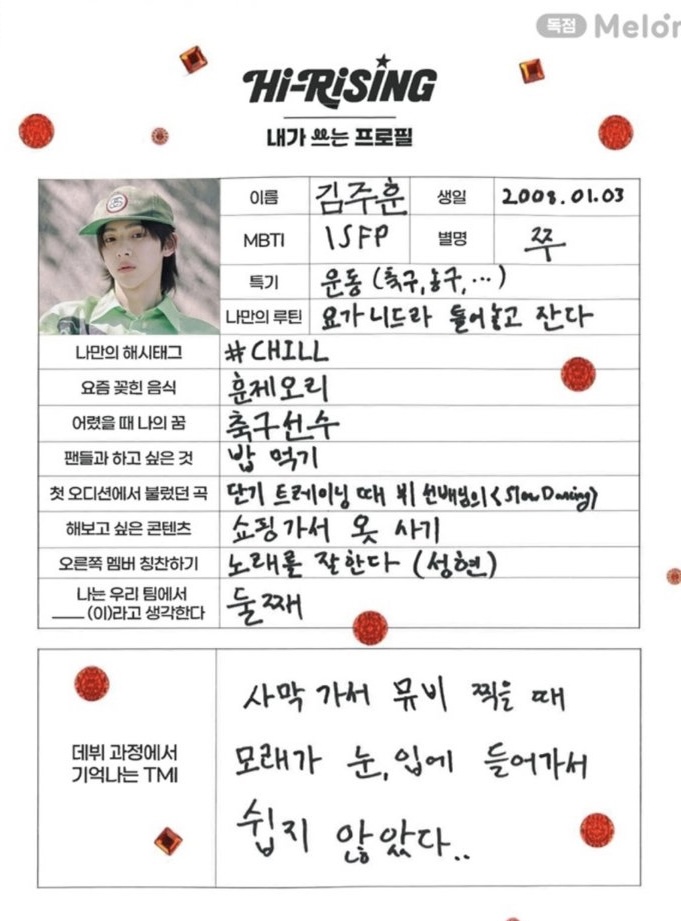 독점 Melon
Hi-RiSING
내가 쓰는 프로필
이름 김주훈 생일 2008.01.03
MBTI ISFP 별명 쭈
특기 운동 (축구,농구,…)
나만의 루틴 요가 니드라 틀어놓고 잔다
나만의 해시태그 #CHILL
요즘 꽂힌 음식 훈제오리
어렸을 때 나의 꿈 축구선수
팬들과 하고 싶은 것 밥 먹기
첫 오디션에서 불렀던 곡 단기 트레이닝 때 뷔 선배님의 <Slow Dancing>
해보고 싶은 콘텐츠 쇼핑가서 옷 사기
오른쪽 멤버 칭찬하기 노래를 잘한다 (성현)
나는 우리 팀에서
____ (이)라고 생각한다 둘째
데뷔 과정에서
기억나는 TMI
사막 가서 뮤비 찍을 때
모래가 눈,입에 들어가서
쉽지 않았다..